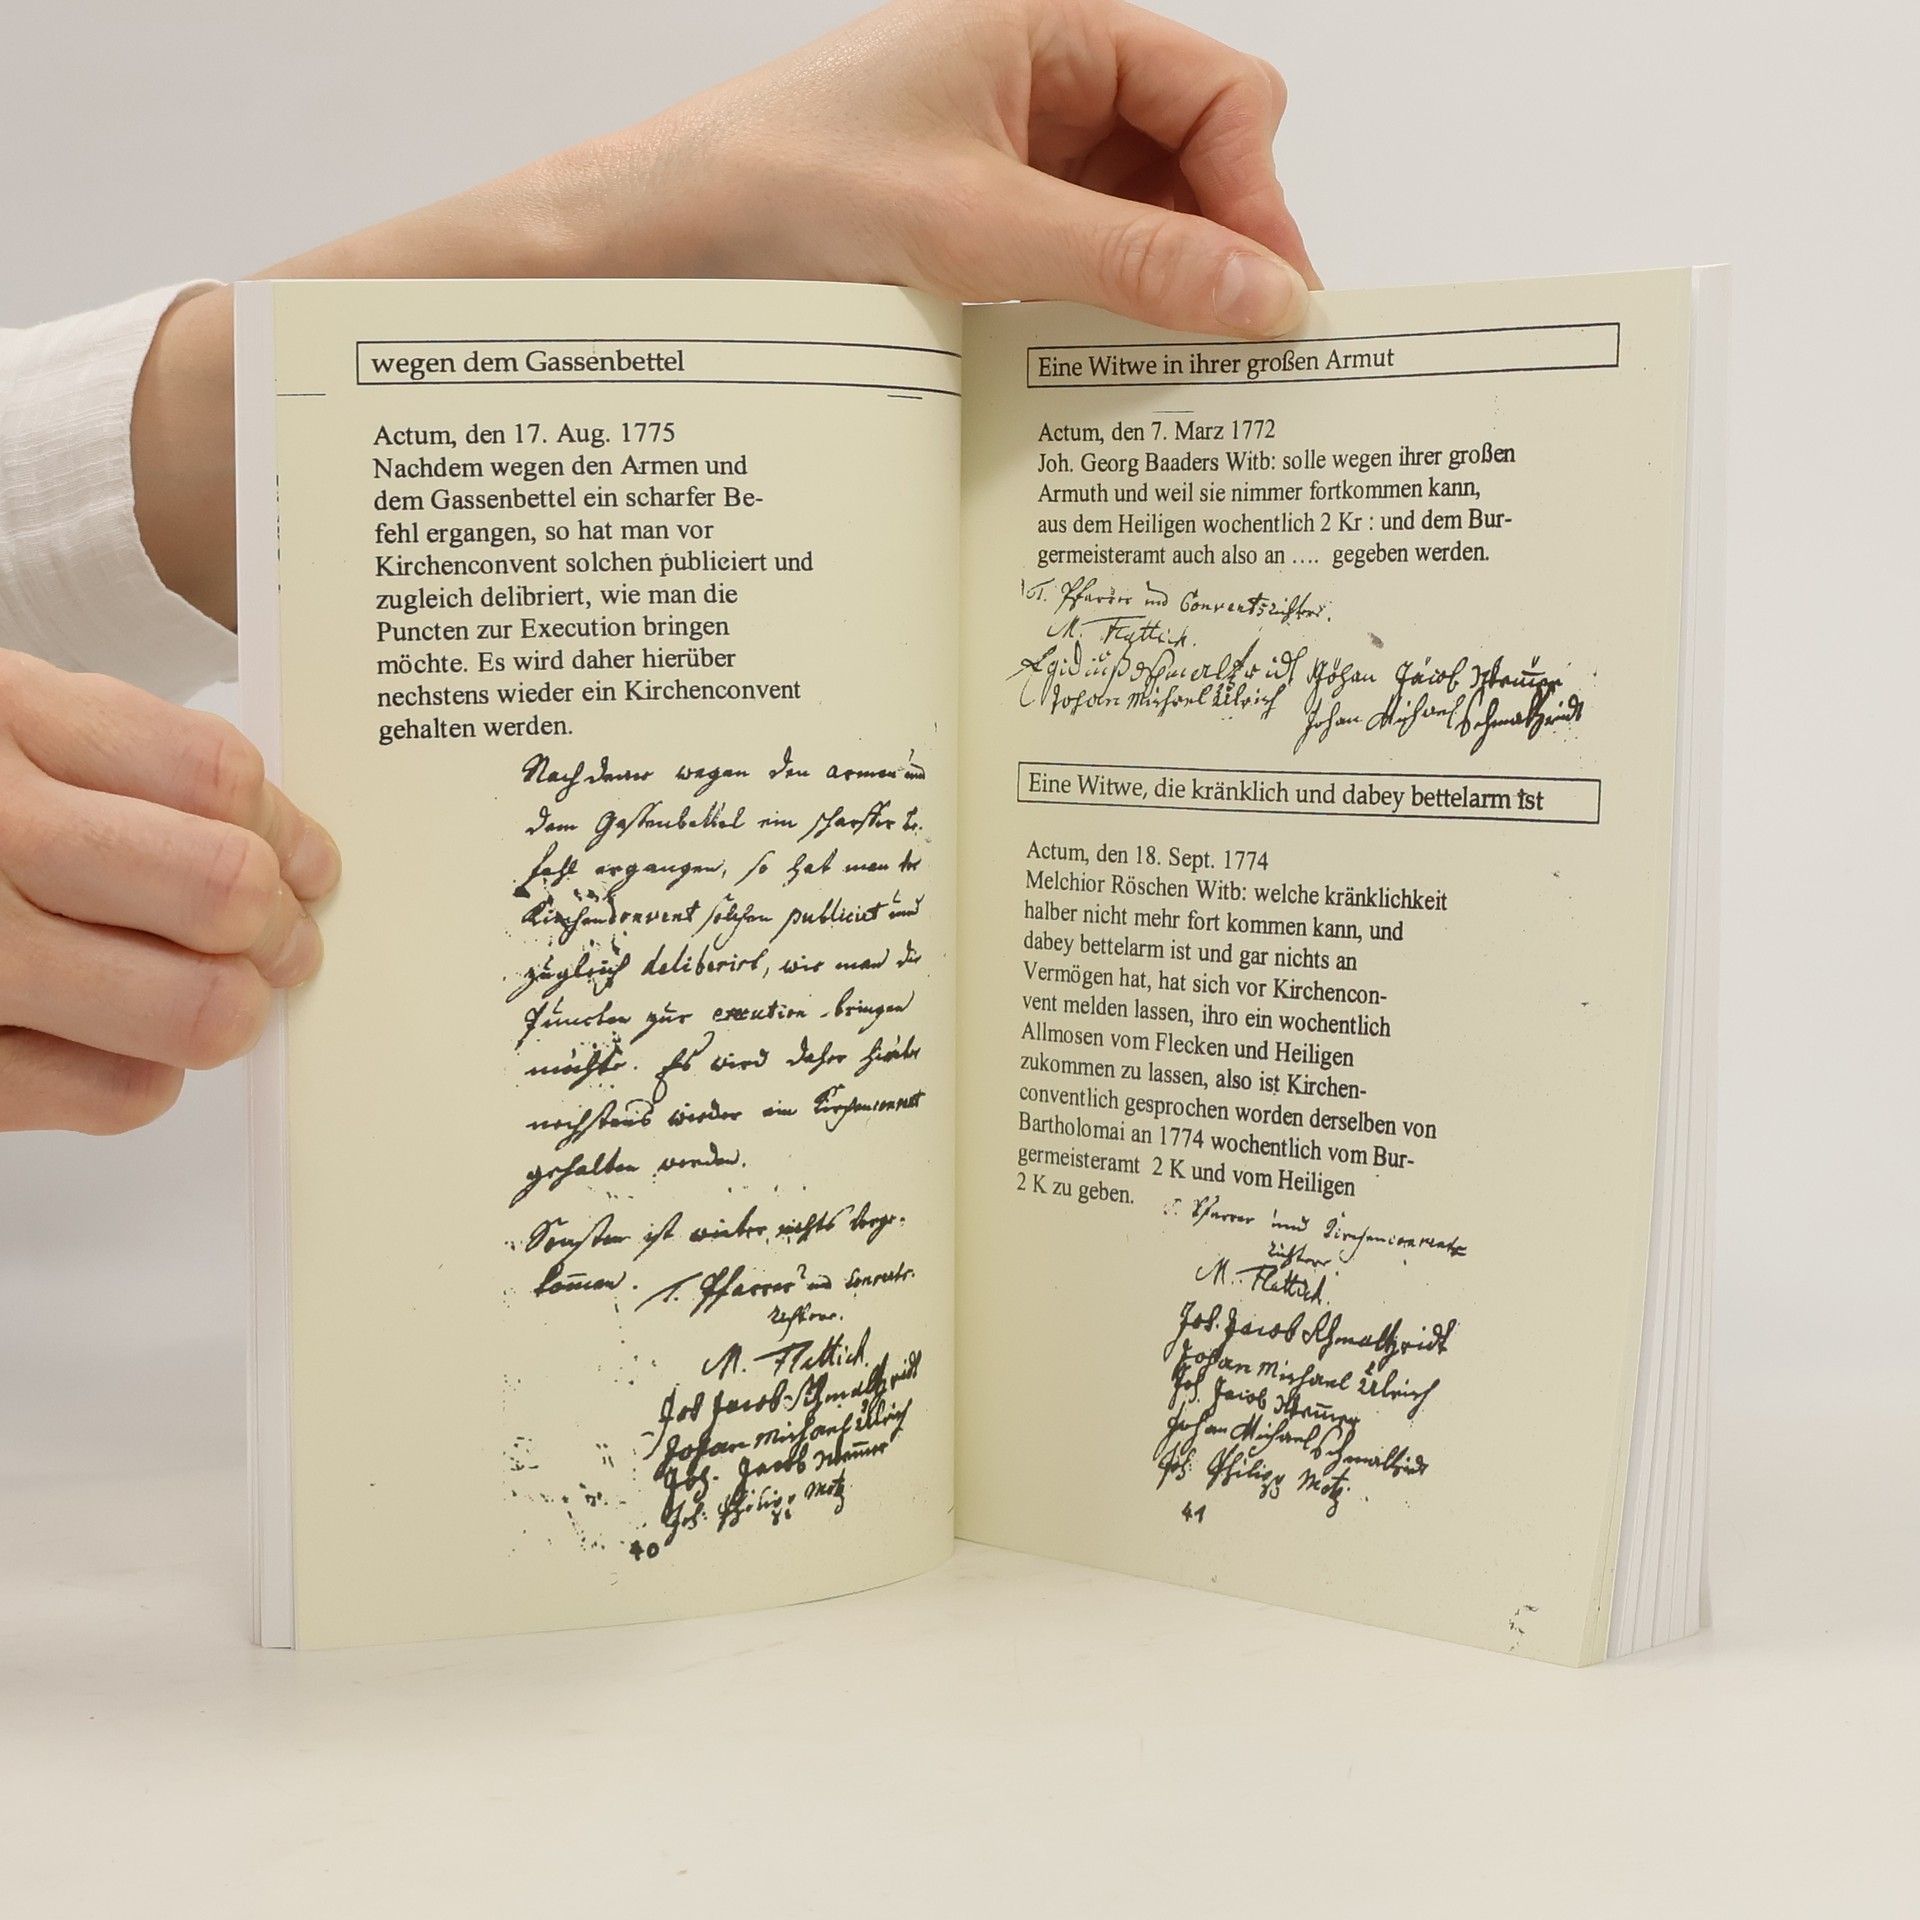 wegen dem Gassenbettel
Actum, den 17. Aug. 1775
Nachdem wegen den Armen und
dem Gassenbettel ein scharfer Be-
fehl ergangen, so hat man vor
Kirchenconvent solchen publiciert und
zugleich delibriert, wie man die
Puncten zur Execution bringen
möchte. Es wird daher hierüber
nechstens wieder ein Kirchenconvent
gehalten werden.
Nachdeme wegen den armen und
dem Gassenbettel ein scharffer be-
fehl ergangen, so hat man vor
Kirchenconvent solchen publicirt und
zugleich deliberirt, wie man die
Puncten zur execution bringen
möchte. Es wird daher hierüber
nechstens wieder ein Kirchenconvent
gehalten werden.
Sonsten ist weiter nichts vorge-
kommen. T. Pfarrer und Convents-
richtere.
M. Flattich.
Joh Jacob Schmaltzridt
Johan Michael Ulrich
Joh. Jacob
Joh: Philipp Motz
40
Eine Witwe in ihrer großen Armut
Actum, den 7. Marz 1772
Joh. Georg Baaders Witb: solle wegen ihrer großen
Armuth und weil sie nimmer fortkommen kann,
aus dem Heiligen wochentlich 2 Kr : und dem Bur-
germeisteramt auch also an .... gegeben werden.
T. Pfarrer und Conventsrichtere.
M. Flattich.
Egidius Schmaltzridt Johan Jacob
Johan Michael Ulrich
Johan Michael Schmaltzridt
Eine Witwe, die kränklich und dabey bettelarm ist
Actum, den 18. Sept. 1774
Melchior Röschen Witb: welche kränklichkeit
halber nicht mehr fort kommen kann, und
dabey bettelarm ist und gar nichts an
Vermögen hat, hat sich vor Kirchencon-
vent melden lassen, ihro ein wochentlich
Allmosen vom Flecken und Heiligen
zukommen zu lassen, also ist Kirchen-
conventlich gesprochen worden derselben von
Bartholomai an 1774 wochentlich vom Bur-
germeisteramt 2 K und vom Heiligen
2 K zu geben.
T. Pfarrer und Kirchenconvents
richtere
M. Flattich.
Joh. Jacob Schmaltzridt
Johan Michael Ulrich
Joh. Jacob
Johan Michael Schmaltzridt
Joh: Philipp Motz.
41